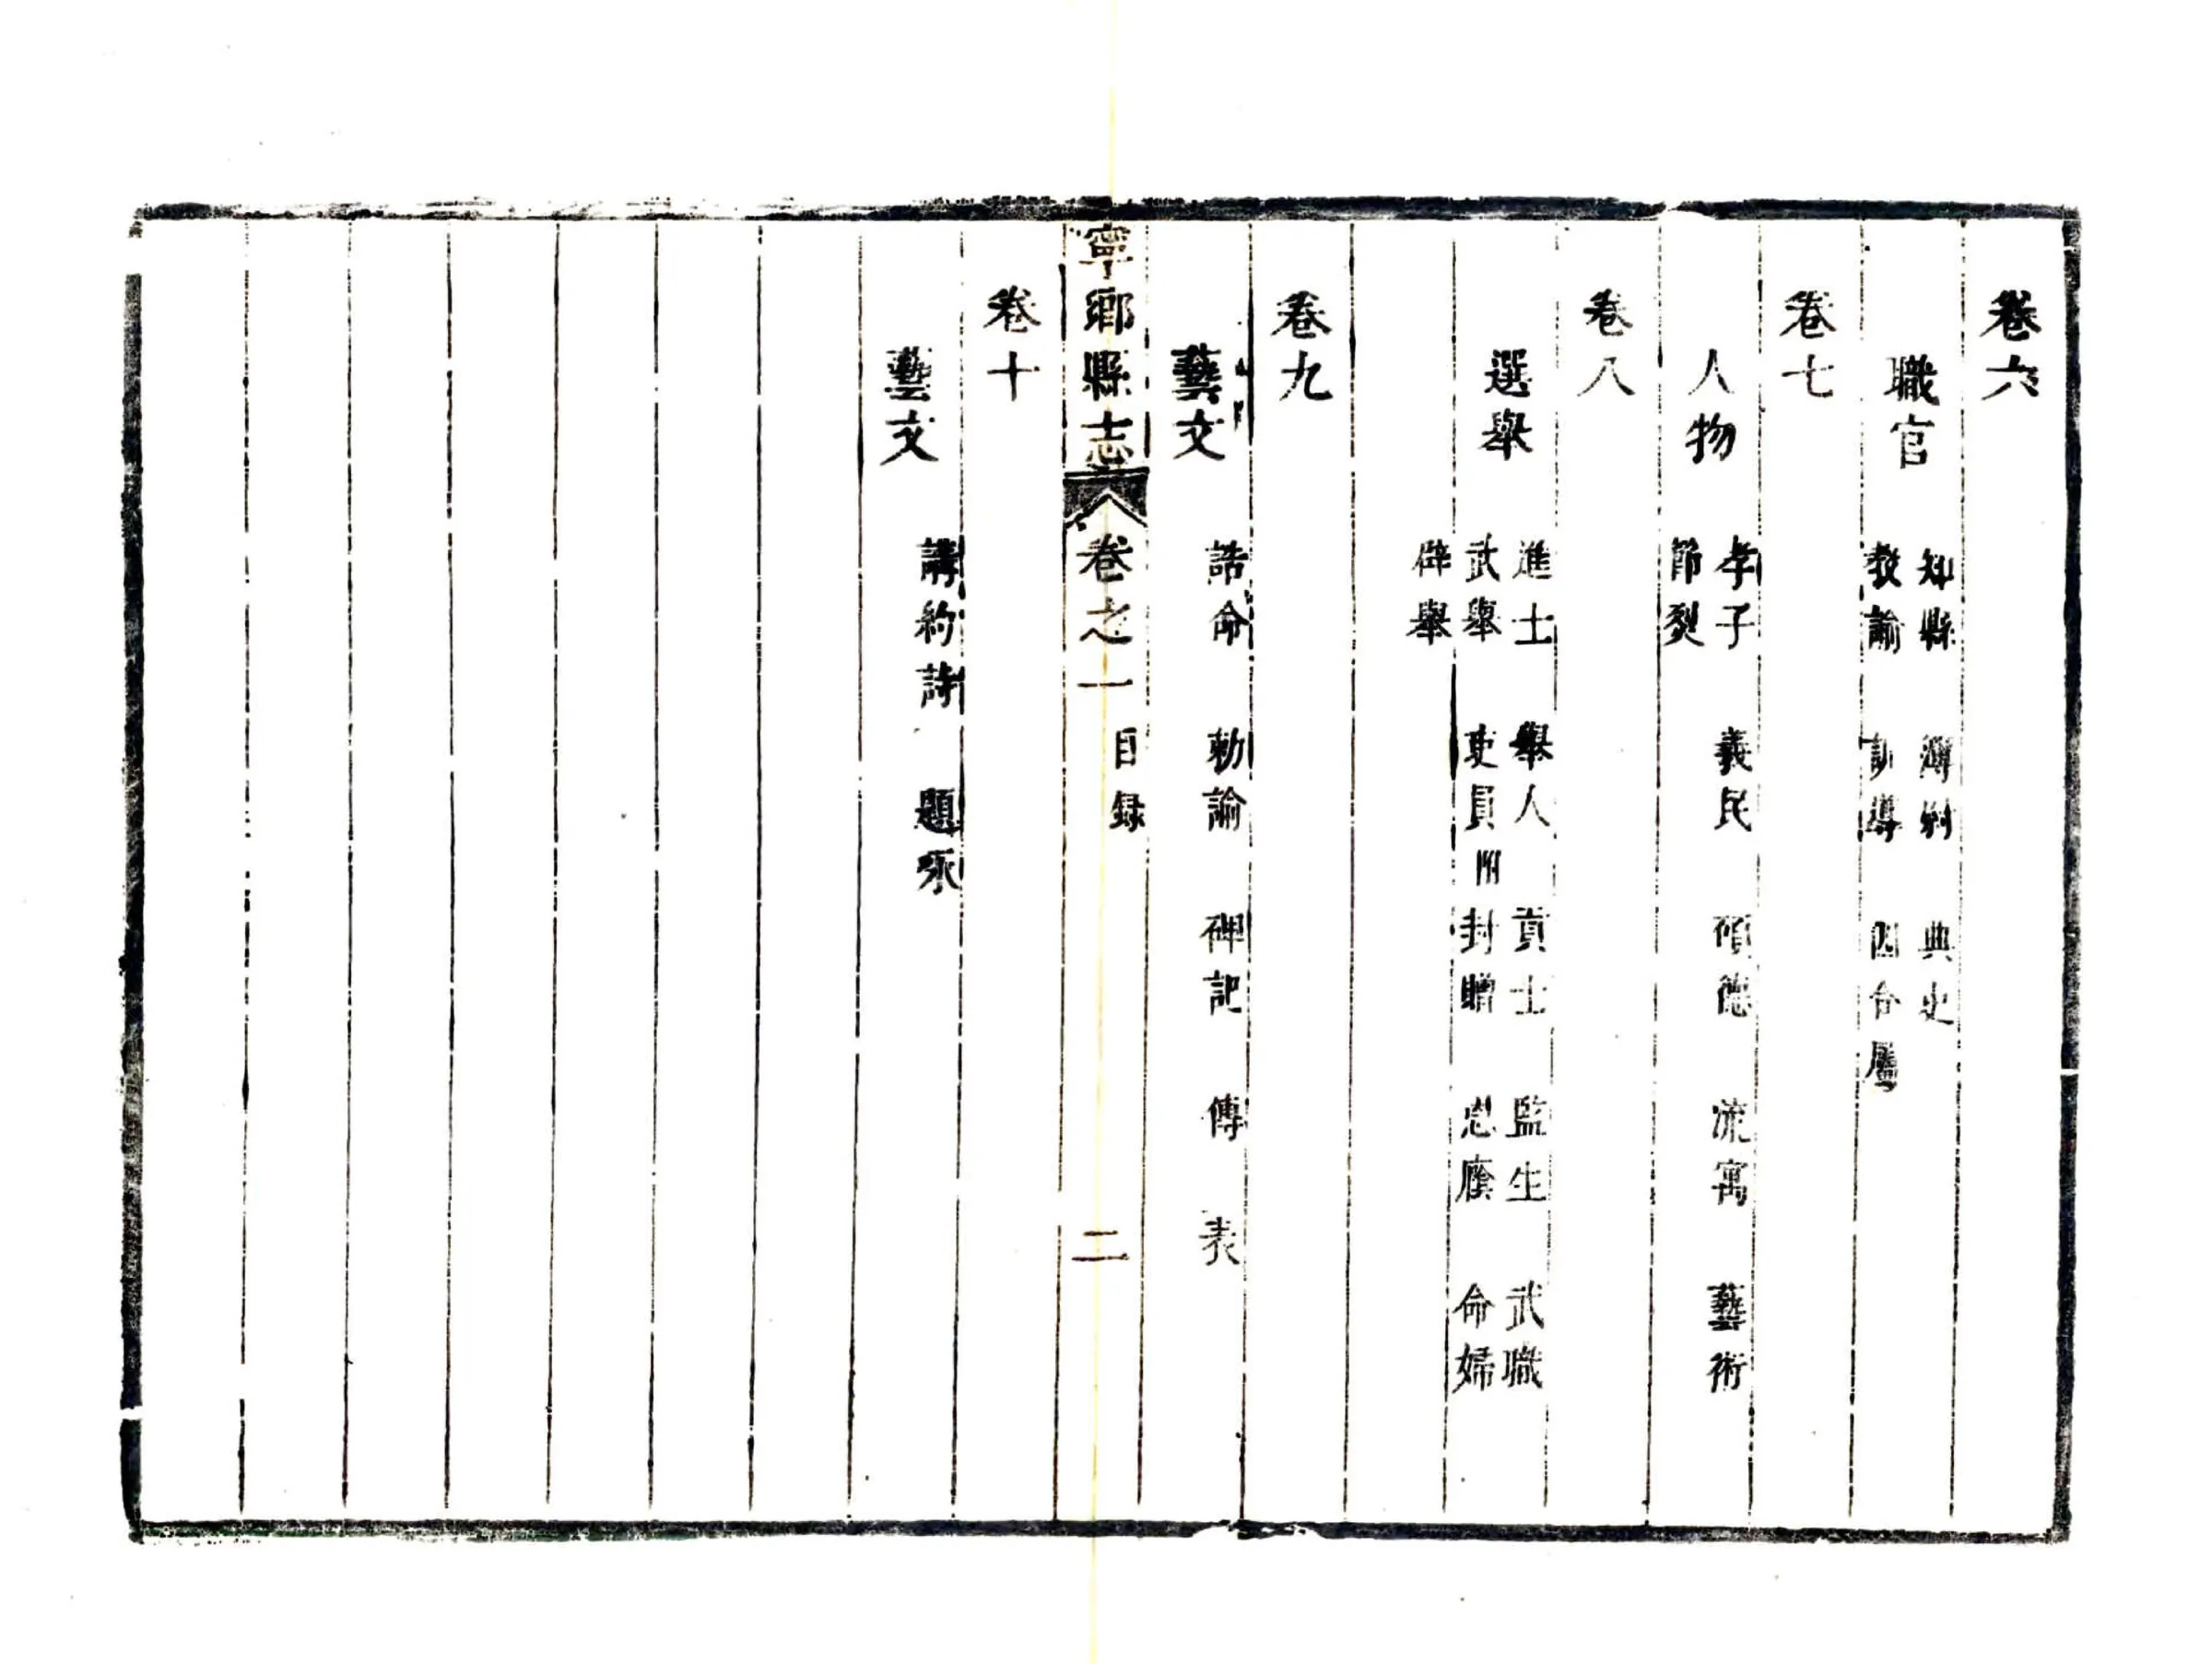 卷六
職官
知縣 簿尉 典史
教諭 訓導 因合屬
卷七
人物
孝子 義民 碩德 流寓 藝術
節烈
卷八
選舉
進士 舉人 貢士 監生 武職
武舉 吏員附 封贈 恩廕 命婦
辟舉
卷九
藝文
誥命 勅諭 碑記 傳 表
寧鄉縣志 卷之一 目録 二
卷十
藝文
講約詩 題咏